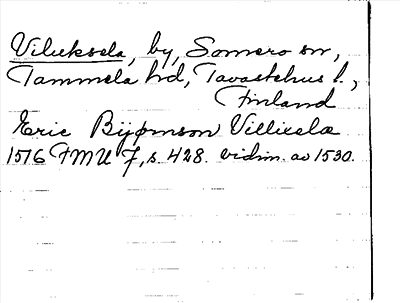 Viluksela, by, Somero sn,
Tammela hd, Tavastehus l.,
Finland
Eric Bijornson Villixela
1516 FMU 7, s. 428. vidim. av 1530.